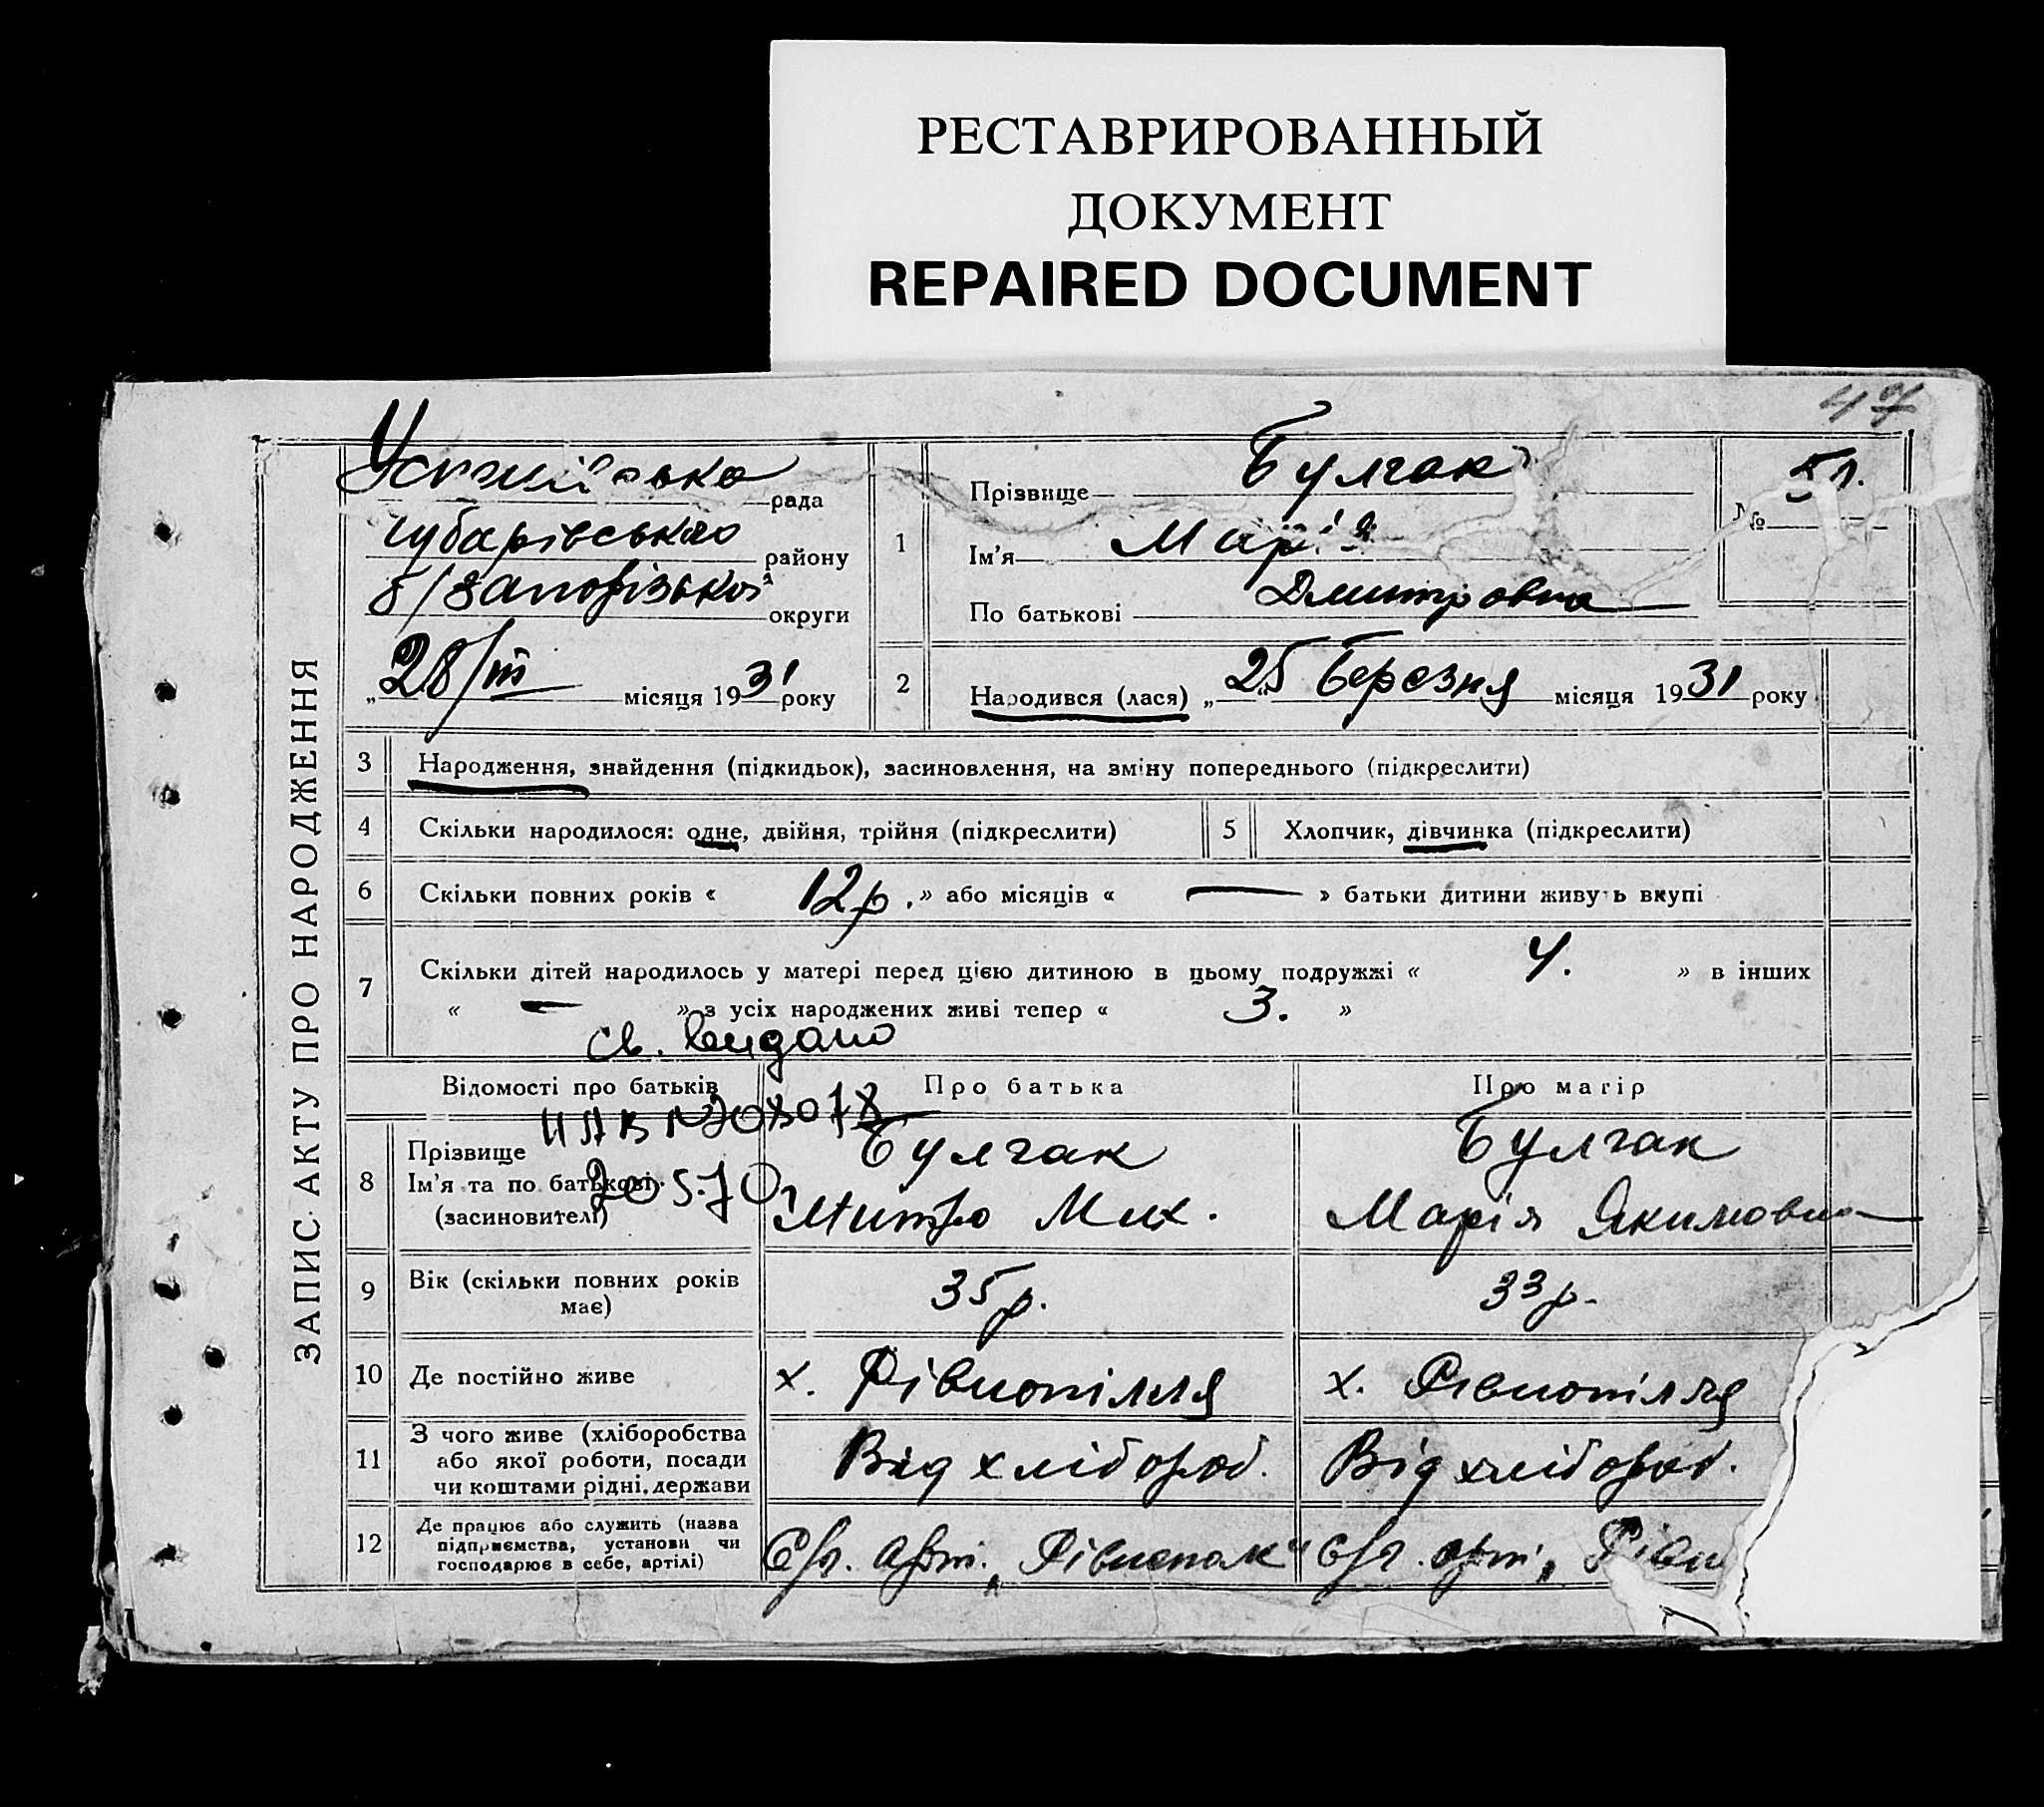 РЕСТАВРИРОВАННЫЙ
ДОКУМЕНТ
REPAIRED DOCUMENT
47
ЗАПИС АКТУ ПРО НАРОДЖЕННЯ
рада
Губарівського району
б/Запорізької округи
„28/III місяця 1931 року
1
Прізвище Булгак
Ім'я Марія
По батькові Дмитровна
№ 51.
2
Народився (лася) „25" Березня місяця 1931 року
3 Народження, знайдення (підкидьок), засиновлення, на зміну попереднього (підкреслити)
4 Скільки народилося: одне, двійня, трійня (підкреслити)
5 Хлопчик, дівчинка (підкреслити)
6 Скільки повних років « 12 р. » або місяців « — » батьки дитини живуть вкупі
7 Скільки дітей народилось у матері перед цією дитиною в цьому подружжі « 4. » в інших
« — » з усіх народжених живі тепер « 3. »
св. видано
20 5.70
Відомості про батьків
Про батька
Про матір
8
Прізвище
Ім'я та по батькові
(засиновителі)
Булгак
Митро Мих.
Булгак
Марія Якимовна
9
Вік (скільки повних років
має)
35 р.
33 р.
10 Де постійно живе
х. Рівнопілля
х. Рівнопілля
11
З чого живе (хліборобства
або якої роботи, посади
чи коштами рідні, держави
Від хлібороб.
Від хлібороб.
12
Де працює або служить (назва
підприємства, установи чи
господарює в себе, артілі)
С/г. арт. „Рівнопіл"
с/г. арт. „Рівн